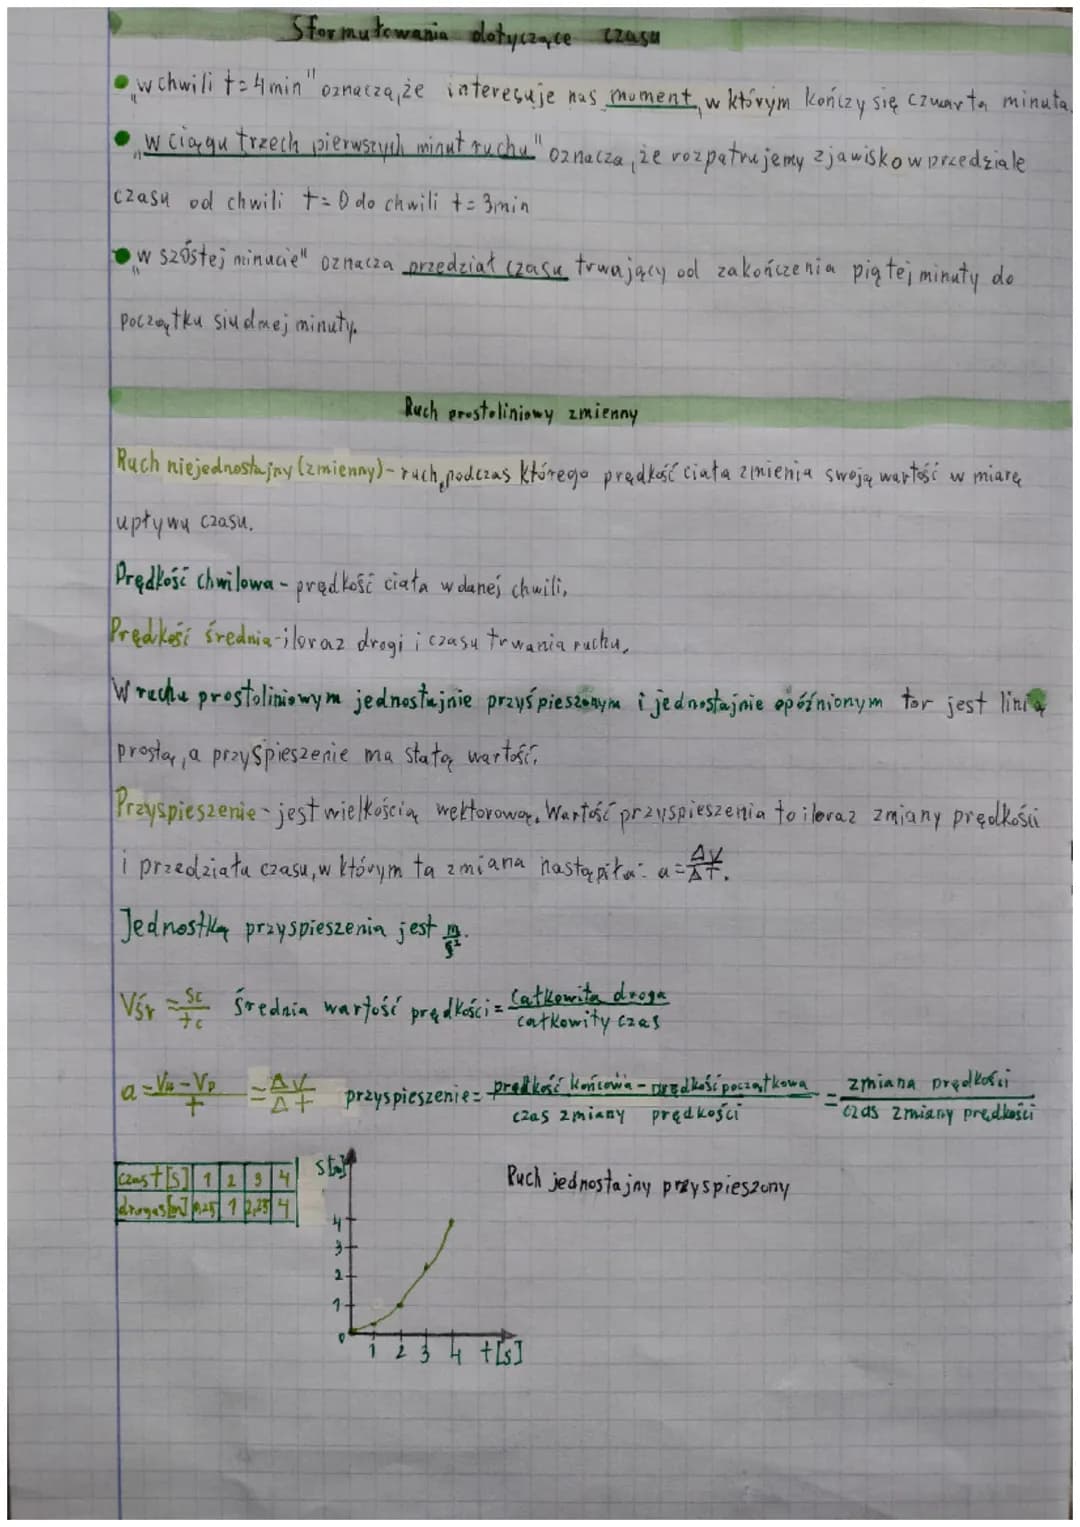 Sformułowania dotyczące czasu
"w chwili t=4min" oznacza, że interesuje nas moment, w którym kończy się czwarta minuta.
"w ciągu trzech pierwszych minut ruchu" oznacza, że rozpatrujemy zjawisko w przedziale
czasu od chwili t=0 do chwili t=3min
"w szóstej minucie" oznacza przedział czasu trwający od zakończenia piątej minuty do
początku siudmej minuty.
Ruch prostoliniowy zmienny
Ruch niejednostajny (zmienny) - ruch, podczas którego prędkość ciała zmienia swoją wartość w miarę
upływu czasu.
Prędkość chwilowa - prędkość ciała w danej chwili.
Prędkość średnia - iloraz drogi i czasu trwania ruchu.
W ruchu prostoliniowym jednostajnie przyśpieszonym i jednostajnie opóźnionym tor jest linią
prostą, a przyśpieszenie ma stałą wartość.
Przyspieszenie - jest wielkością wektorową. Wartość przyspieszenia to iloraz zmiany prędkości
i przedziału czasu, w którym ta zmiana nastąpiła: a = ΔV/Δt.
Jednostką przyspieszenia jest m/s².
Vśr = Sc/tc średnia wartość prędkości = całkowita droga/całkowity czas
a = Vk-Vp/t = ΔV/Δt przyspieszenie = prędkość końcowa - prędkość początkowa/czas zmiany prędkości = zmiana prędkości/czas zmiany prędkości
czas t[s] 1 2 3 4
droga s[m] 0,25 1 2,25 4
s[m]
Ruch jednostajny przyspieszony
4
3
2
1
0
1 2 3 4 t[s]